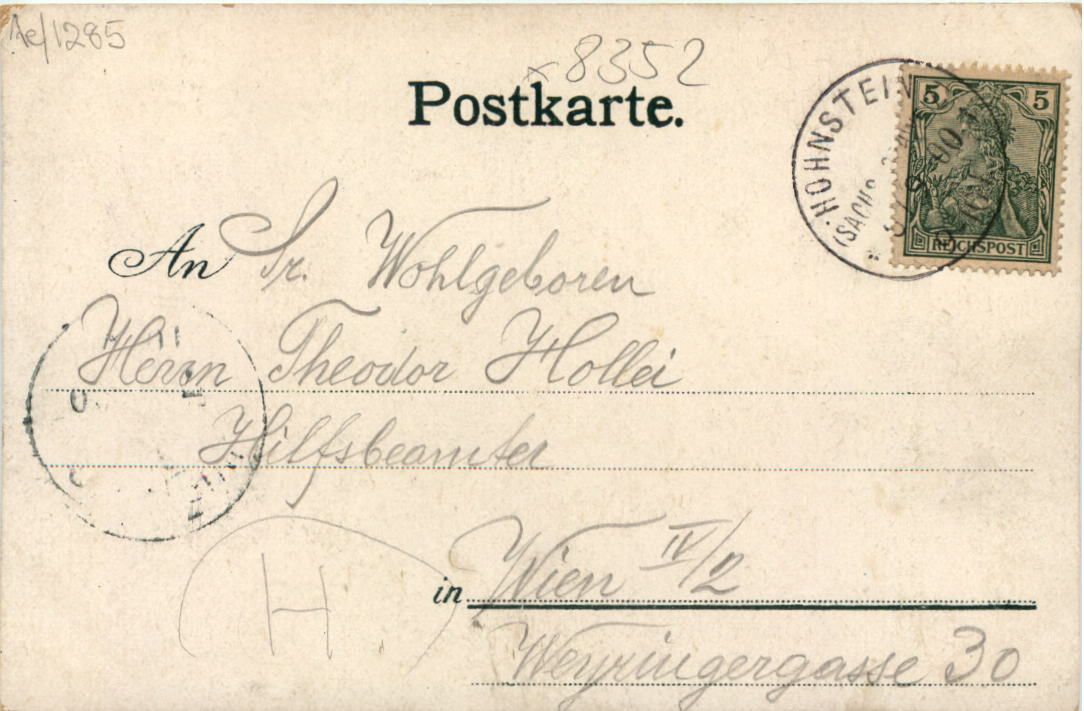 Ae/1285
x 8352
Postkarte.
HOHNSTEIN
(SACHS.
5 5
REICHSPOST
An Sr. Wohlgeboren
Herrn Theodor Hollei
Hilfsbeamter
in Wien IV/2
Weyringergasse 30
H